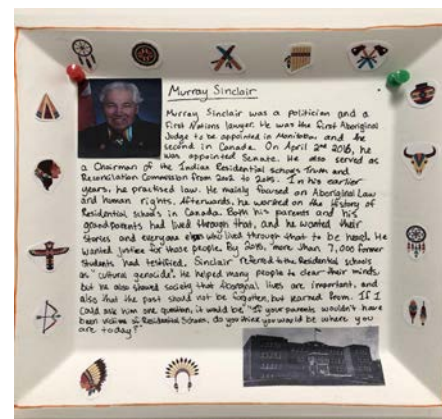 Murray Sinclair
Murray Sinclair was a politician and a
First Nations lawyer. He was the first Aboriginal
Judge to be appointed in Manitoba and the
second in Canada. On April 2nd 2016, he
was appointed Senate. He also served as
a Chairman of the Indian Residential schools Truth and
Reconciliation Commission from 2002 to 2015. In his earlier
years, he practised law. He mainly focused on Aboriginal Law
and human rights. Afterwards, he worked on the History of
Residential schools in Canada. Both his parents and his
grandparents had lived through that, and he wanted their
stories and everyone who lived through that to be heard. He
wanted justice for those people. By 2015, more than 7,000 former
students had testified. Sinclair referred to the Residential schools
as "cultural genocide". He helped many people to clear their minds,
but he also showed society that Aboriginal lives are important, and
also that the past should not be forgotten, but learned from. If I
could ask him one question, it would be "If your parents wouldn't have
been victims of Residential Schools, do you think you would be where you
are today?"